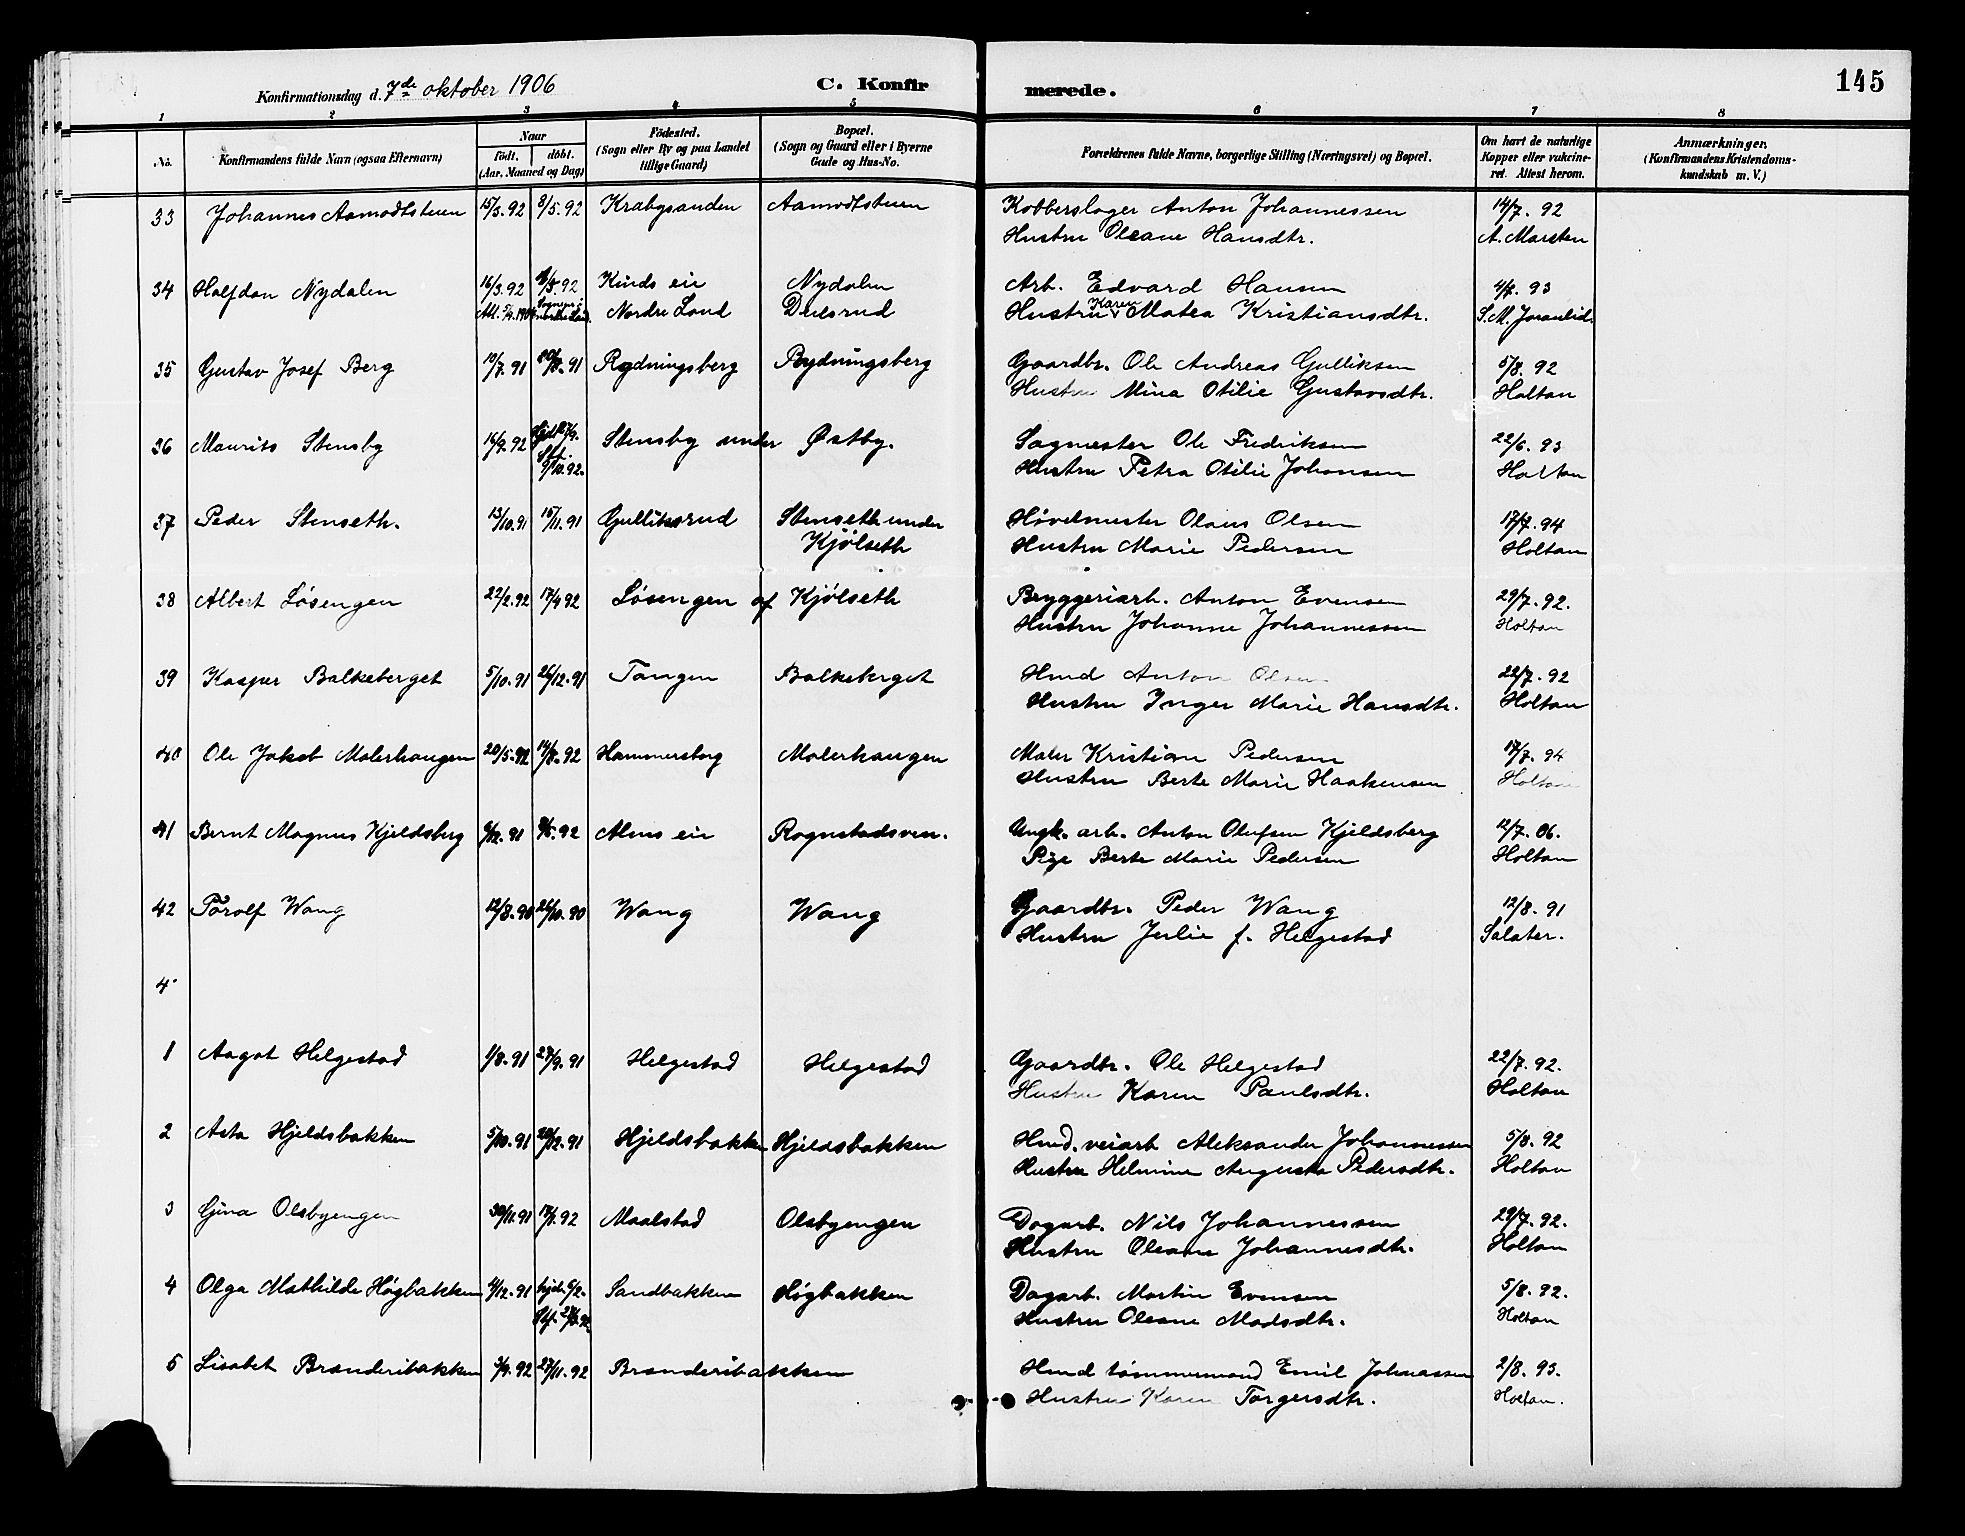 Konfirmationsdag d. 7de oktober 1906 C. Konfirmerede. 145
1 2 3 4 5 6 7 8
No. Konfirmandens fulde Navn (ogsaa Efternavn) Naar født. døbt. (Aar, Maaned og Dag) Fødested. (Sogn eller By og paa Landet tillige Gaard) Bopæl. (Sogn og Gaard eller i Byerne Gade og Hus-No. Forældrenes fulde Navne, borgerlige Stilling (Næringsvei) og Bopæl. Om havt de naturlige Kopper eller vakcineret. Attest herom. Anmærkninger. (Konfirmandens Kristendomskundskab m. V.)
33 Johannes Aamodtstuen 15/3.92 8/5.92 Krabysanden Aamodtstuen Kobberslager Anton Johannessen 14/7. 92
Hustru Oleane Hansdtr. A. Marsten
34 Halfdan Nydalen 16/3.92 Kinds eie Nydalen Arb. Edvard Hansen 4/7. 93
Nordre Land Deelsrud Hustru Karen Matea Kristiansdtr.
35 Gustav Josef Berg 10/7.91 Rydningsberg Rydningsberg Gaardbr. Ole Andreas Gulliksen 5/8. 92
Hustru Mina Otilie Gustavsdtr. Holtan
36 Maurits Stensby 16/9.92 Stensby under Østby. Sagmester Ole Fredriksen 22/6. 93
9/10.92. Hustru Petra Otilie Johansen Holtan
37 Peder Stenseth. 13/10.91 15/11.91 Gulliksrud Stenseth under Høvelmester Olaus Olsen 17/7. 94
Kjølseth Hustru Marie Pedersen Holtan
38 Albert Løsengen 22/2.92 17/4 92 Løsengen af Kjølseth Bryggeriarb. Anton Evensen 29/7. 92.
Hustru Johanne Johannessen Holtan
39 Kasper Balkeberget 5/10.91 26/12.91 Tangen Balkeberget Hmd Anton Olsen 22/7. 92
Hustru Inger Marie Hansdtr. Holtan
40 Ole Jakob Malerhaugen 20/5.92 14/8.92 Hammersborg Malerhaugen Maler Kristian Pedersen 17/7. 94
Hustru Berte Marie Haakensen Holtan
41 Bernt Magnus Kjeldsberg 6/12.91 8/5.92 Alms eie Rognstadsven. Ungk. arb. Anton Olufsen Kjeldsberg 12/7. 06.
Pige Berte Marie Pedersen Holtan
42 Torolf Wang 12/8.90 26/10.90 Wang Wang Gaardbr. Peder Wang 12/8. 91
Hustru Julie f. Helgestad Salater.
4
1 Aagot Helgestad 1/8.91 27/9.91 Helgestad Helgestad Gaardbr. Ole Helgestad 22/7. 92.
Hustru Karen Paulsdtr. Holtan
2 Asta Hjeldsbakken 5/10.91 20/12.91 Hjeldsbakken Hjeldsbakken Hmd. veiarb Aleksander Johannessen 5/8. 92
Hustru Helmine Augusta Pedersdtr. Holtan
3 Gina Olsbyengen 30/11.91 17/1.92 Maalstad Olsbyengen Dagarb. Nils Johannessen 29/7. 92.
Hustru Oleane Johannesdtr. Holtan
4 Olga Mathilde Høgbakken 4/12.91 hjdb. 6/2. Sandbakken Høgbakken Dagarb. Martin Evensen 5/8. 92.
Hustru Oleane Madsdtr. Holtan
5 Lisabet Brænderibakken 3/9.92 27/11.92 Brænderibakken Hmd tømmermand Emil Johnassen 2/8. 93.
Hustru Karen Torgersdtr. Holtan.